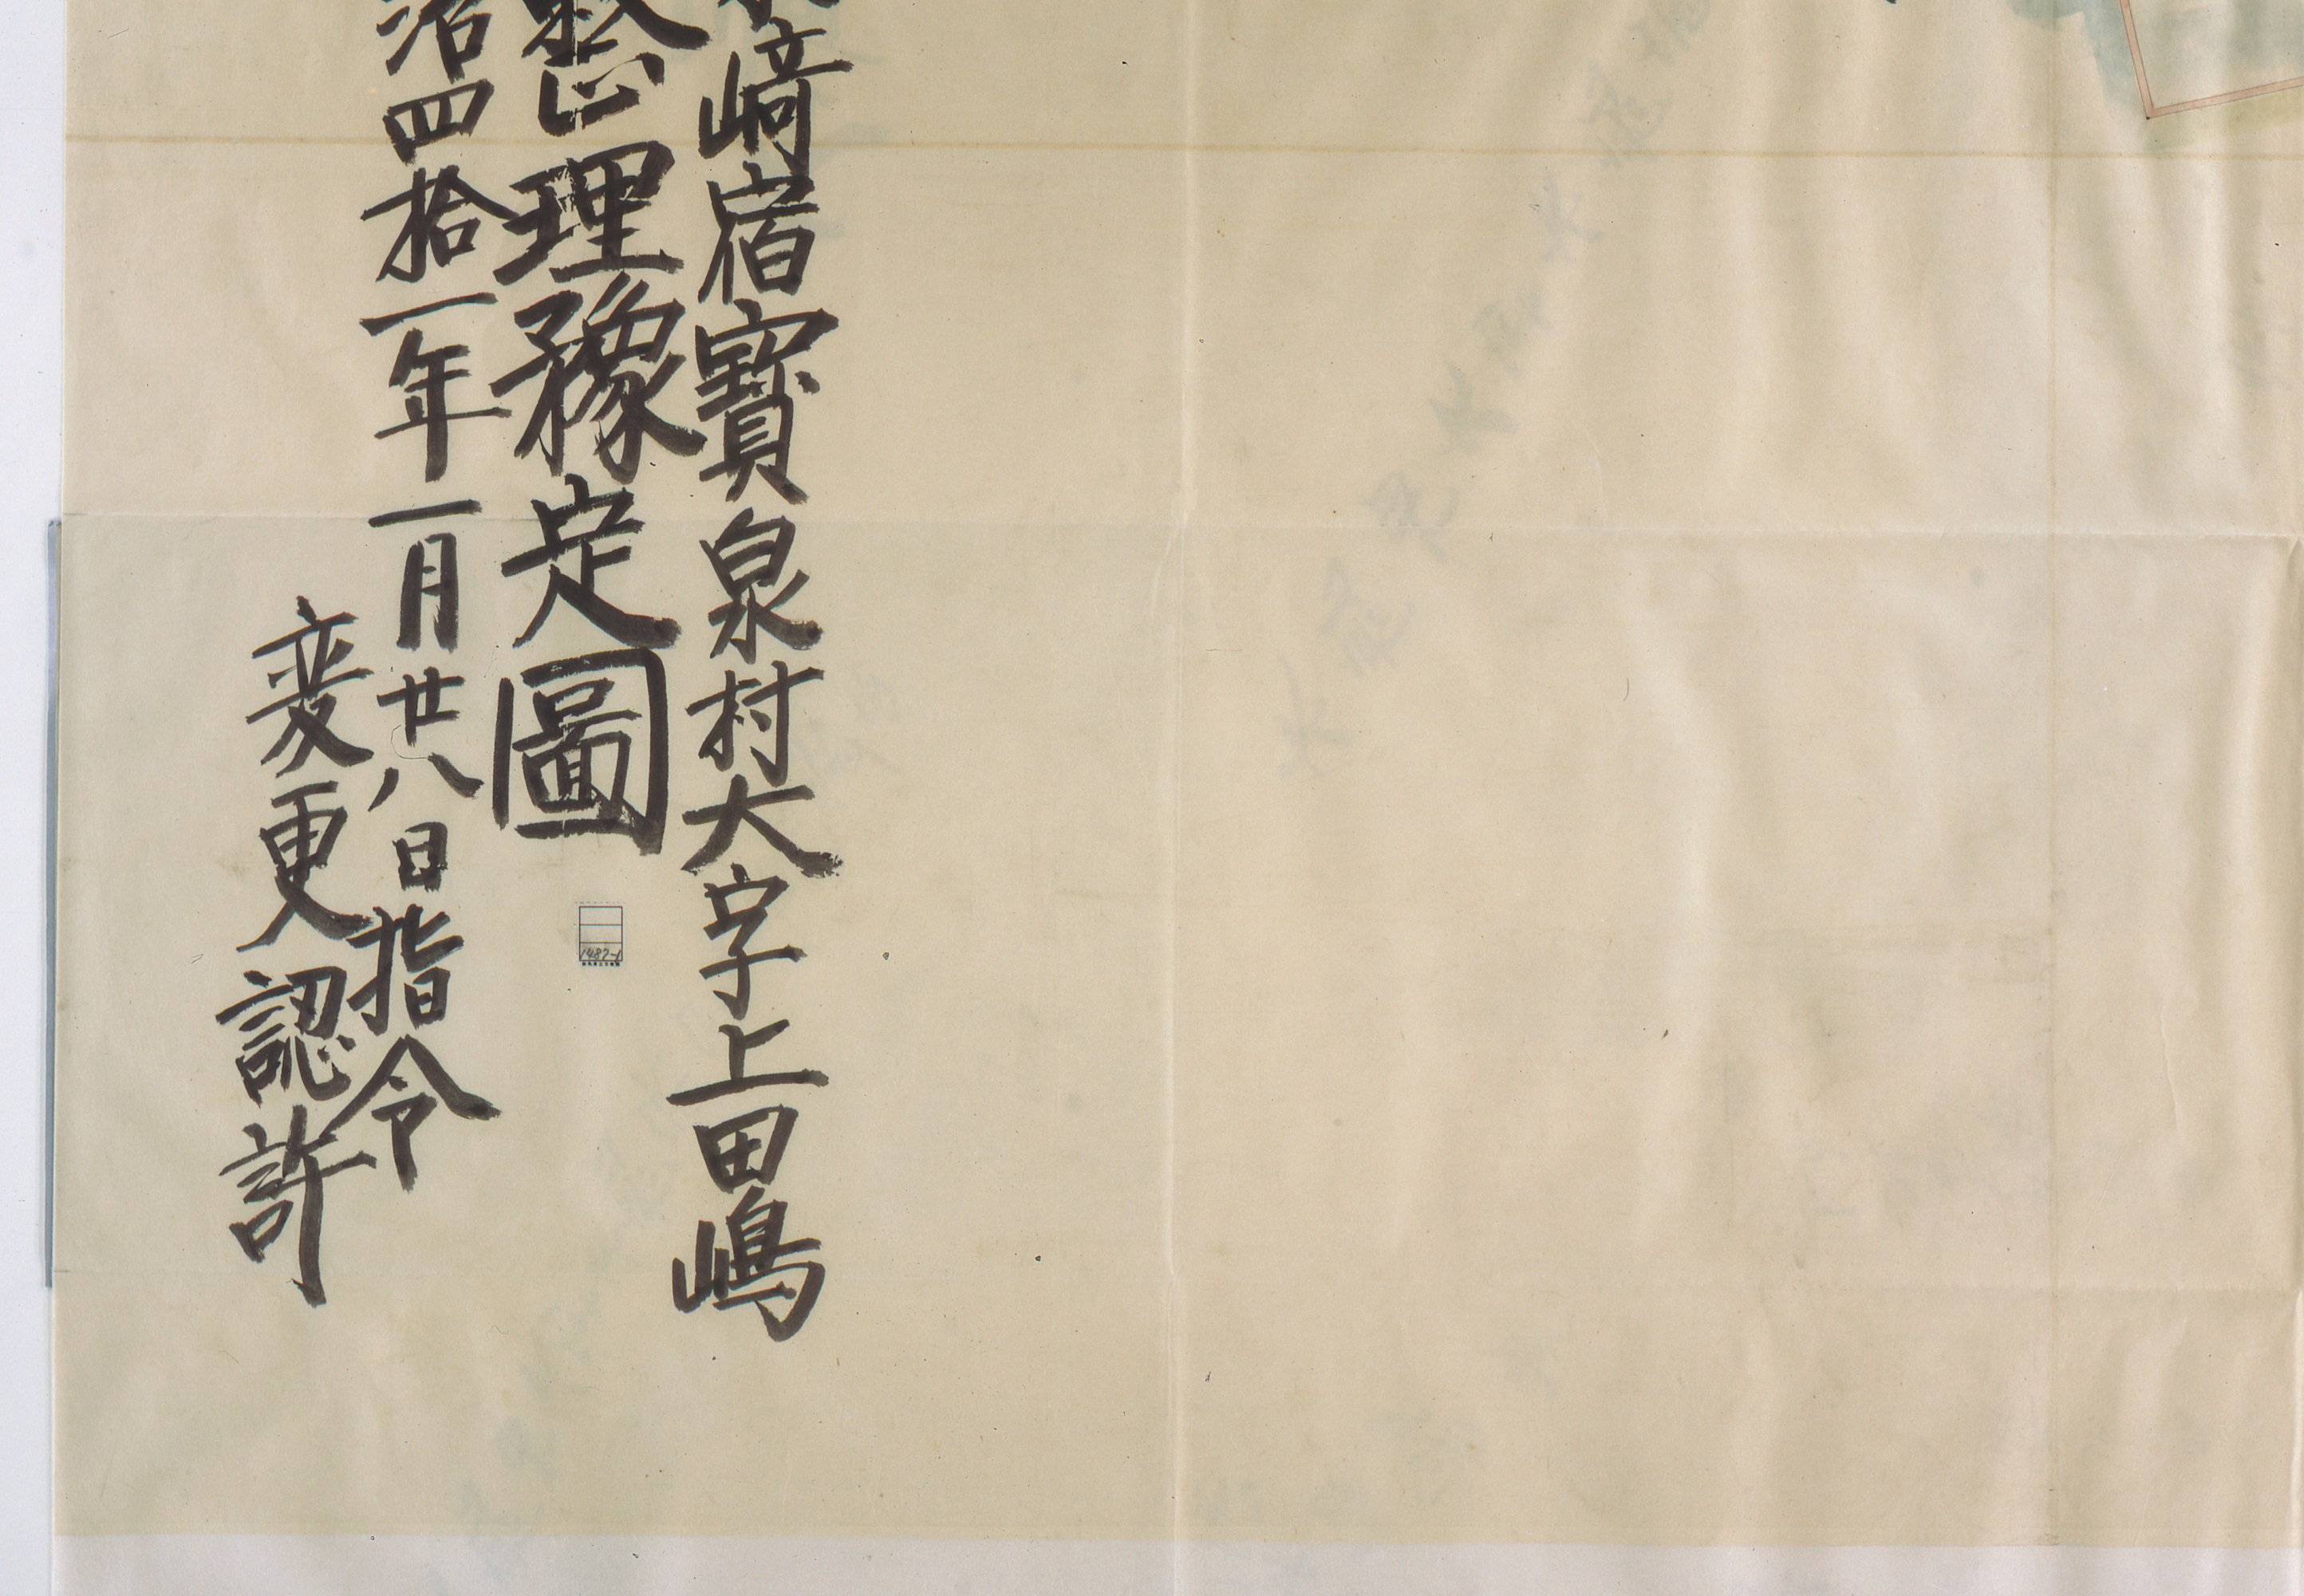 崎宿寳泉村大字上田嶋
整理豫定圖
治四拾一年一月廿八日指令
変更認許
1487-1